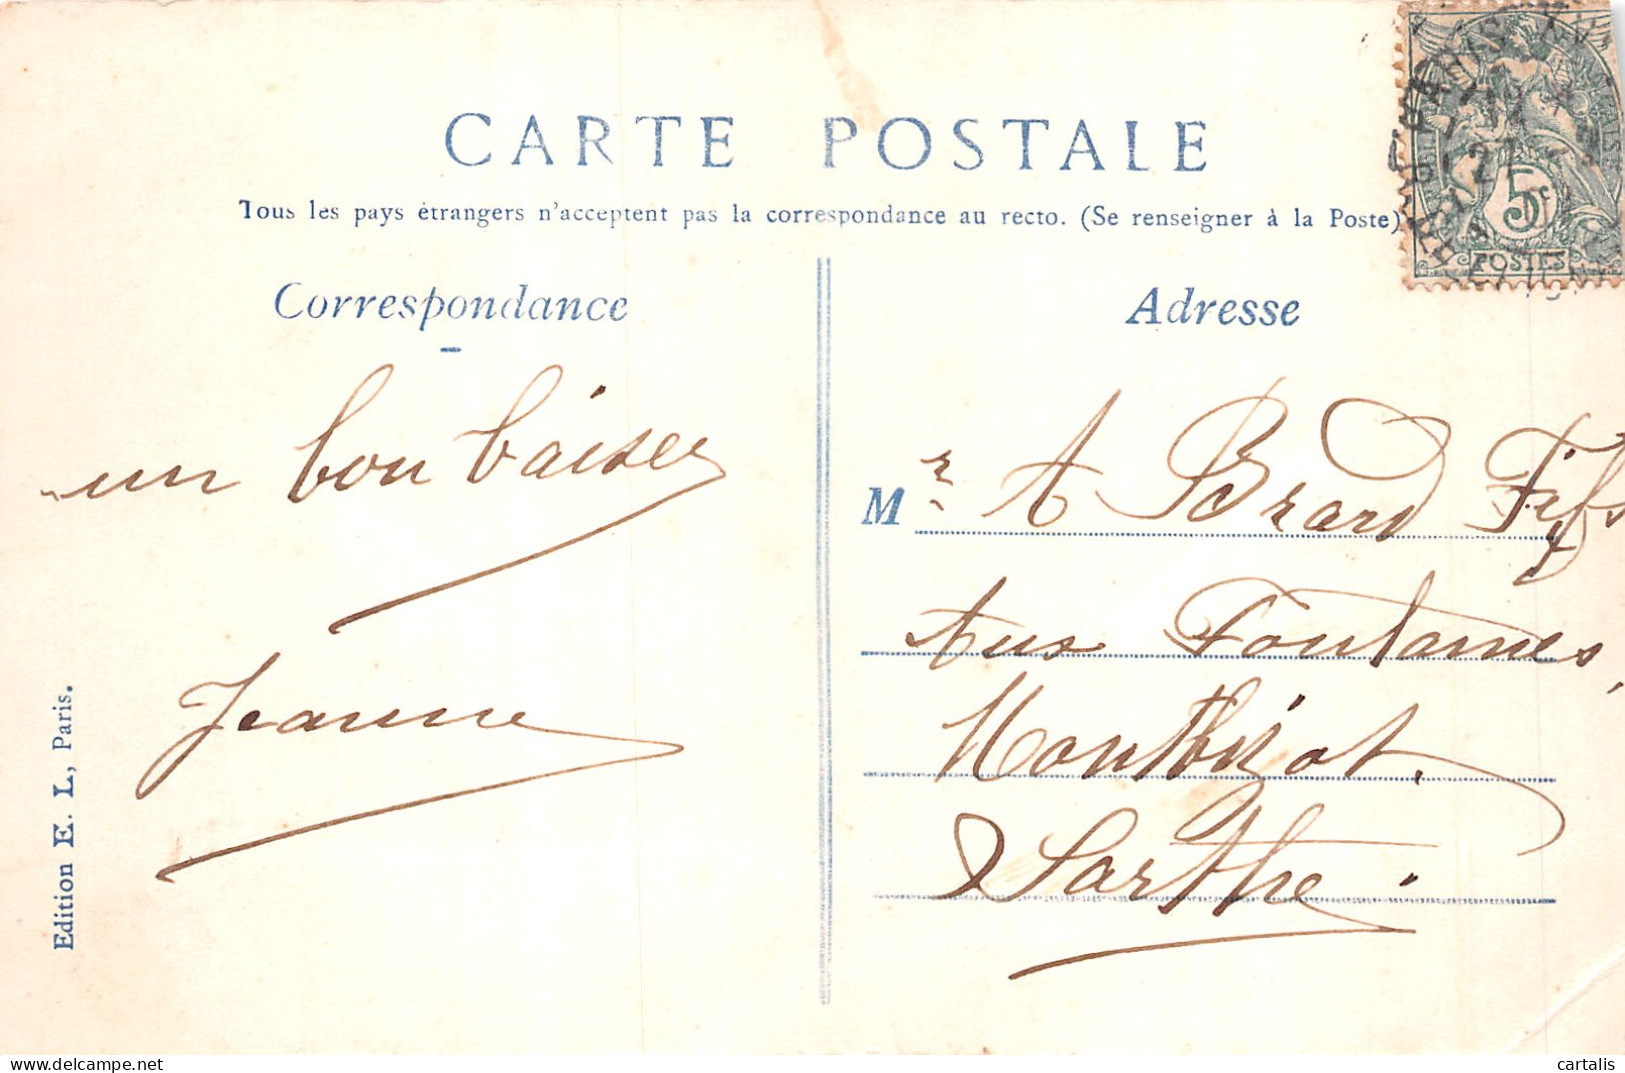 CARTE POSTALE
Tous les pays étrangers n'acceptent pas la correspondance au recto. (Se renseigner à la Poste)
Correspondance
Adresse
un bon baiser
Jeanne
Mr A Brard Fils
Aux Fontaines,
Montbizot.
Sarthe.
Edition E. L., Paris.
PARIS
27
5c
POSTES
cartalis